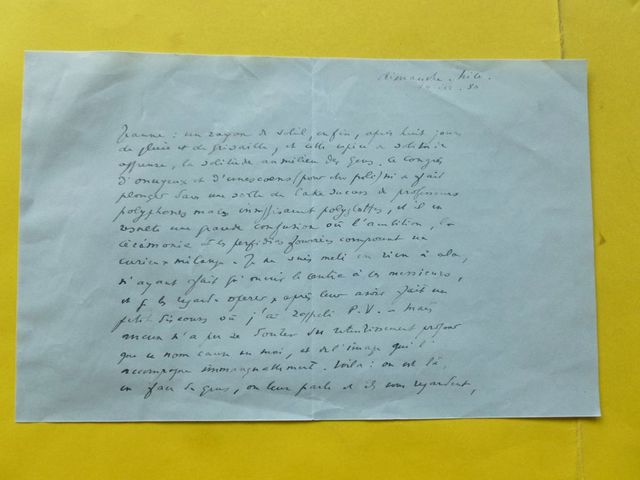 dimanche. Nice.
30
Jeanne : un rayon de soleil, enfin, après huit jours
de pluie et de grisaille, et cette espèce de solitude
affreuse, la solitude au milieu des gens. Le Congrès
d'onuyeux et d'unescoens (pour être poli) m'a fait
plonger dans une sorte de de professeurs
polyphones mais insuffisamment polyglottes, et il en
résulte une grande confusion où l'ambition, la
cérémonie et les perfidies fourrées composent un
curieux mélange. Je ne suis mêlé en rien à cela,
n'ayant fait qu'ouvrir le à ces messieurs,
et je les regarde après leur avoir fait un
petit discours où j'ai rappelé P.V. - mais
aucun n'a pu se douter du retentissement profond
que ce nom cause en moi, et de l'image qui l'
accompagne immanquablement. Voilà : on est là,
en face de gens, on leur parle et ils vous regardent,